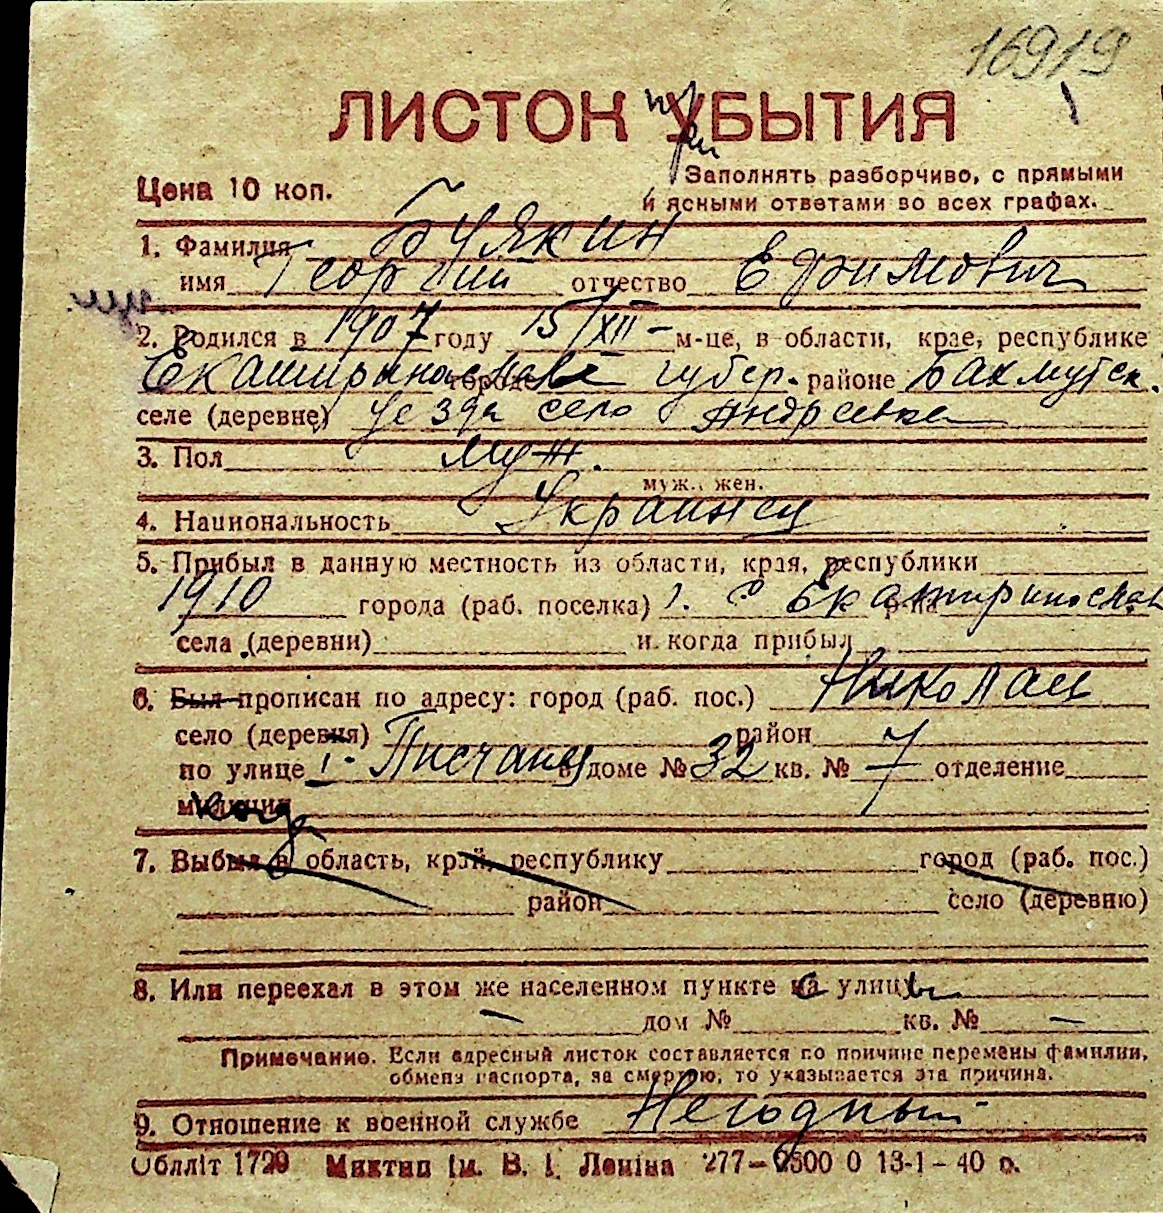 16919
ЛИСТОК УБЫТИЯ
при
Цена 10 коп.
Заполнять разборчиво, с прямыми
и ясными ответами во всех графах.
1. Фамилия Булякин
имя Георгий отчество Ефимович
2. Родился в 1907 году 15/XII – м-це, в области, крае, республике
Екатиринославе городе губер. районе Бахмутск.
селе (деревне) уезда село Андреевка
3. Пол муж.
муж., жен.
4. Национальность Украинец
5. Прибыл в данную местность из области, края, республики
1910 города (раб. поселка) г. Екатиринослав р-на
села (деревни) и когда прибыл
6. Был прописан по адресу: город (раб. пос.) Николаев
село (деревня) район
по улице 1. Писчаная в доме № 32 кв. № 7 отделение
милиции
7. Выбыл в область, край, республику город (раб. пос.)
район село (деревню)
8. Или переехал в этом же населенном пункте с улицы
– дом № кв. № –
Примечание. Если адресный листок составляется по причине перемены фамилии,
обмена паспорта, за смертью, то указывается эта причина.
9. Отношение к военной службе Негодный
Облліт 1729 Миктип ім. В. І. Леніна 277–2500 0 13-1-40 р.